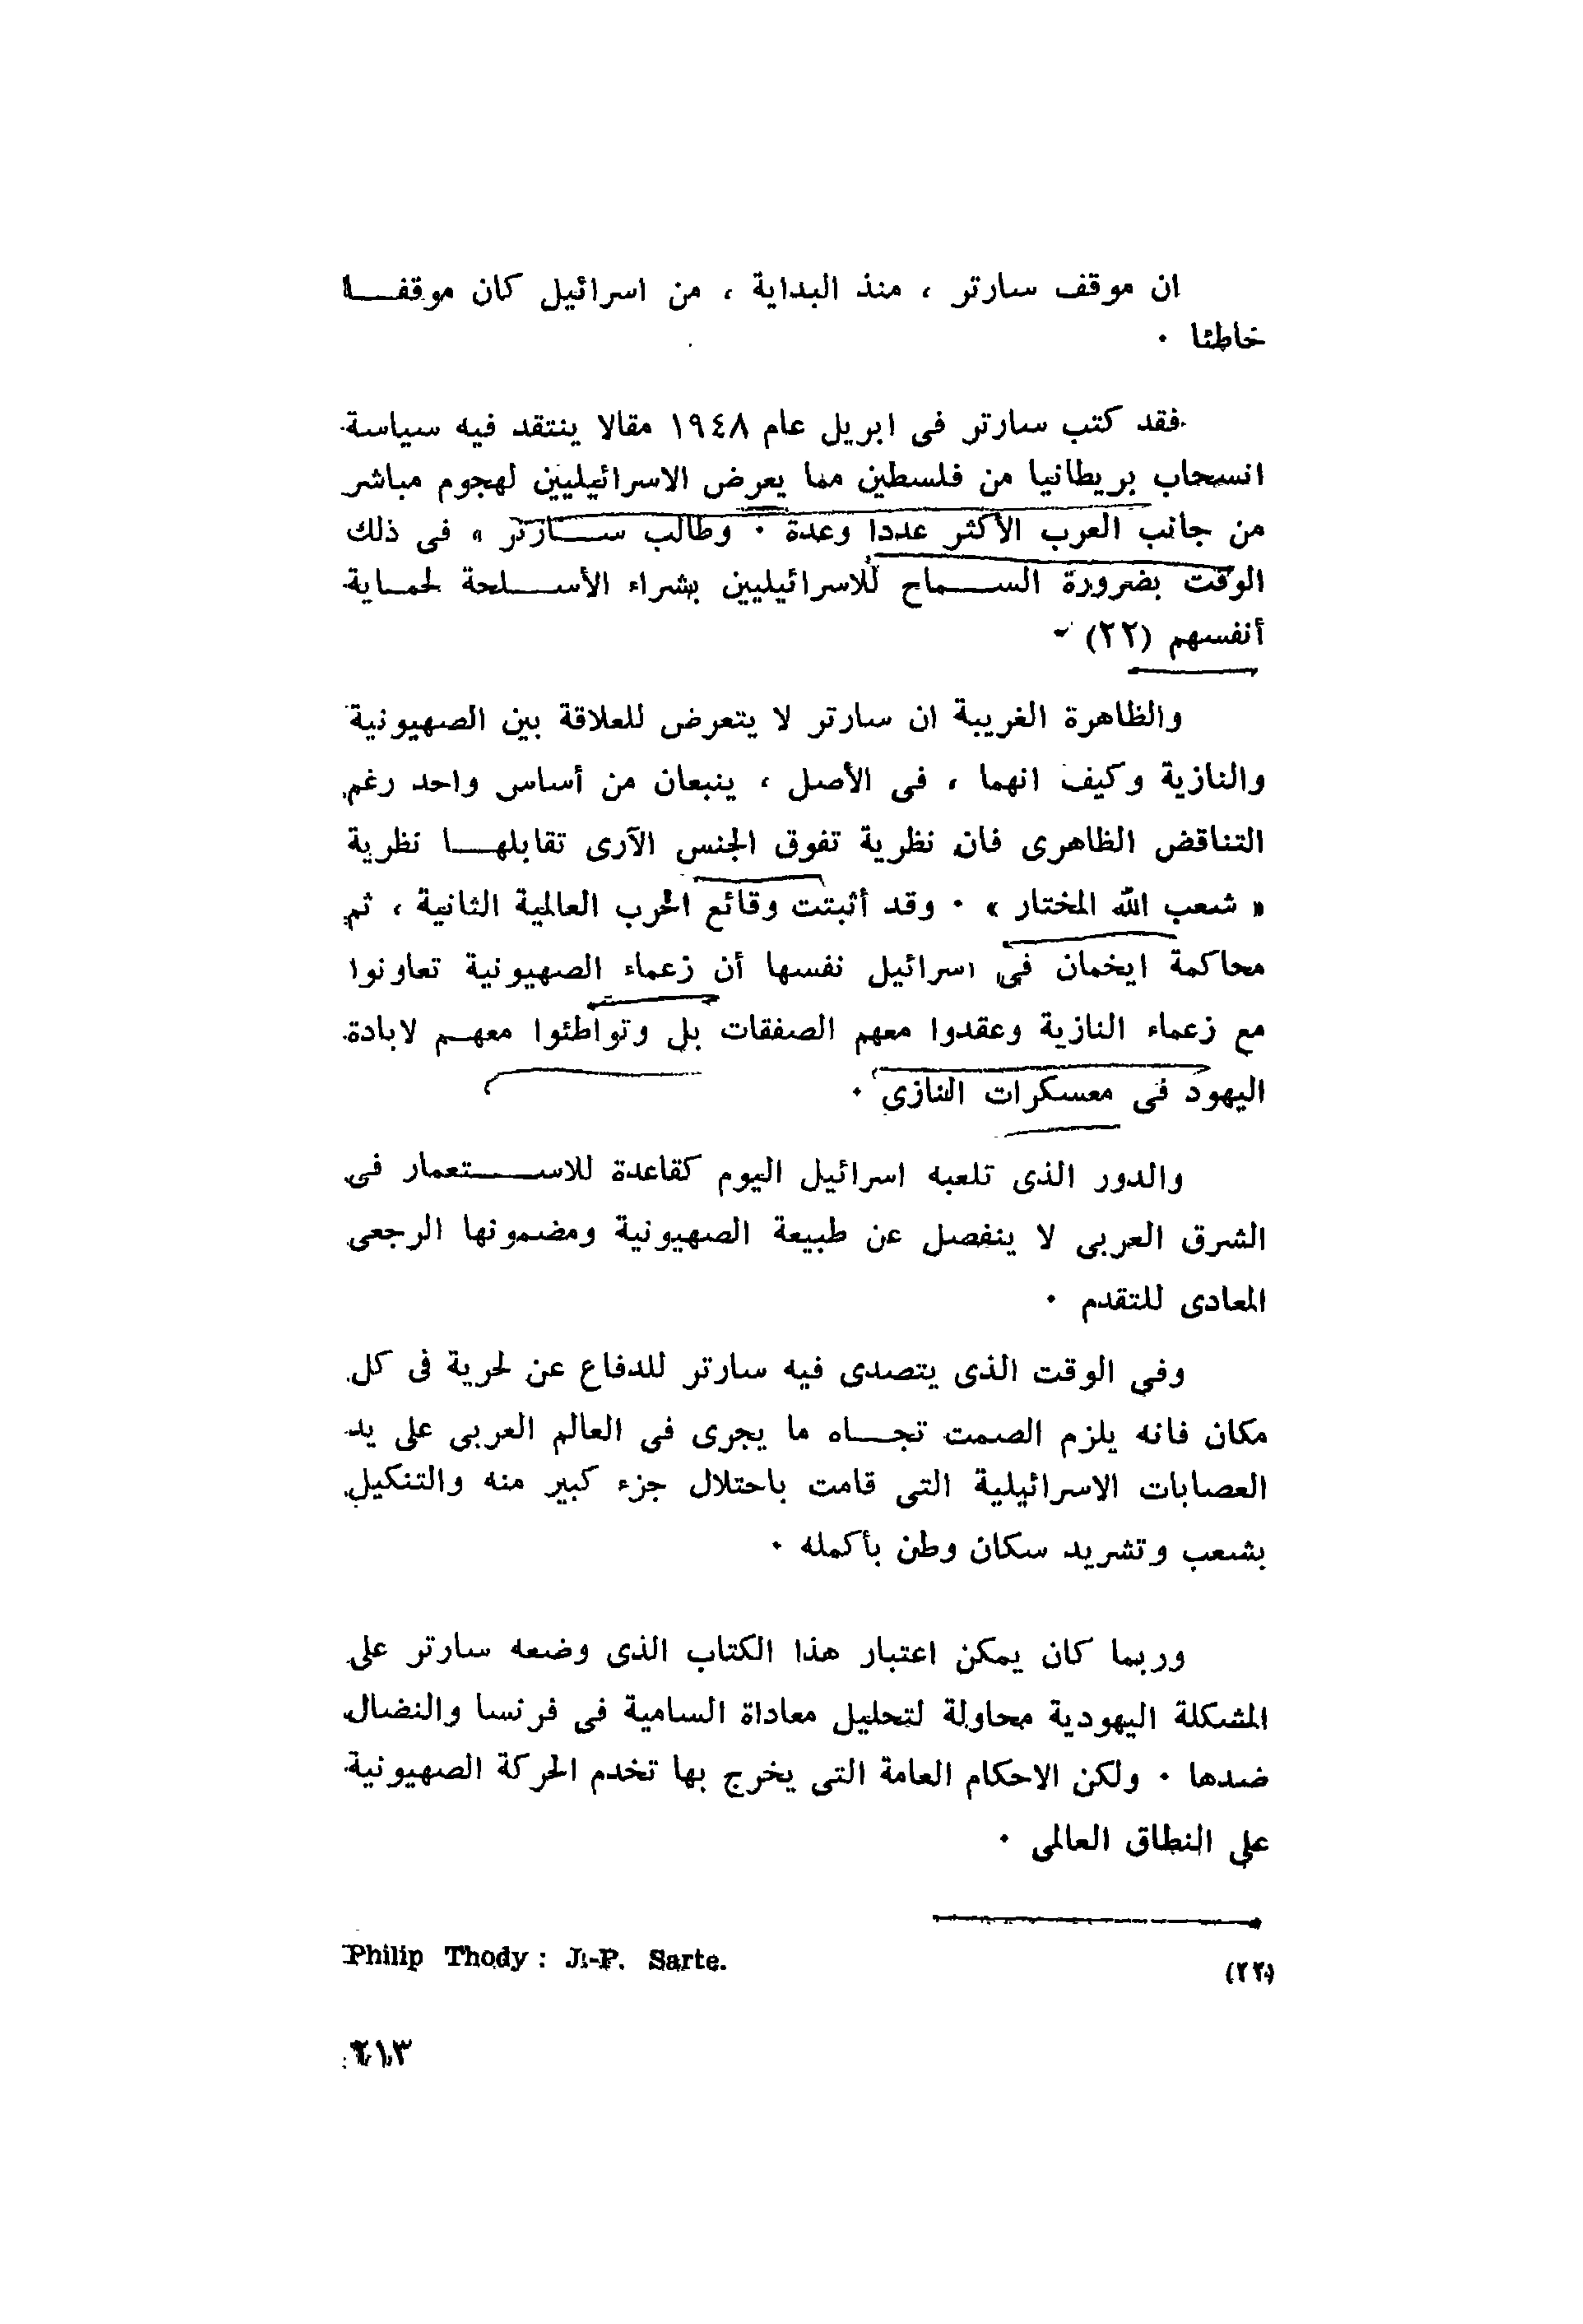 ان موقف سارتر ، منذ البداية ، من اسرائيل كان موقفا
خاطئا ٠
فقد كتب سارتر فى ابريل عام ١٩٤٨ مقالا ينتقد فيه سياسة
انسحاب بريطانيا من فلسطين مما يعرض الاسرائيليين لهجوم مباشر
من جانب العرب الأكثر عددا وعدة ٠ وطالب سارتر « فى ذلك
الوقت بضرورة السماح للاسرائيليين بشراء الأسلحة لحماية
أنفسهم (٢٢)
والظاهرة الغريبة ان سارتر لا يتعرض للعلاقة بين الصهيونية
والنازية وكيف انهما ، فى الأصل ، ينبعان من أساس واحد رغم
التناقض الظاهرى فان نظرية تفوق الجنس الآرى تقابلها نظرية
« شعب الله المختار » ٠ وقد أثبتت وقائع الحرب العالمية الثانية ، ثم
محاكمة ايخمان فى اسرائيل نفسها أن زعماء الصهيونية تعاونوا
مع زعماء النازية وعقدوا معهم الصفقات بل وتواطئوا معهم لابادة
اليهود فى معسكرات النازى ٠
والدور الذى تلعبه اسرائيل اليوم كقاعدة للاستعمار فى
الشرق العربى لا ينفصل عن طبيعة الصهيونية ومضمونها الرجعى
المعادى للتقدم ٠
وفى الوقت الذى يتصدى فيه سارتر للدفاع عن لحرية فى كل
مكان فانه يلزم الصمت تجاه ما يجرى فى العالم العربى على يد
العصابات الاسرائيلية التى قامت باحتلال جزء كبير منه والتنكيل
بشعب وتشريد سكان وطن بأكمله ٠
وربما كان يمكن اعتبار هذا الكتاب الذى وضعه سارتر على
المشكلة اليهودية محاولة لتحليل معاداة السامية فى فرنسا والنضال
ضدها ٠ ولكن الاحكام العامة التى يخرج بها تخدم الحركة الصهيونية
على النطاق العالمى ٠
(٢٢) Philip Thody : J.-P. Sarte.
٢١٣